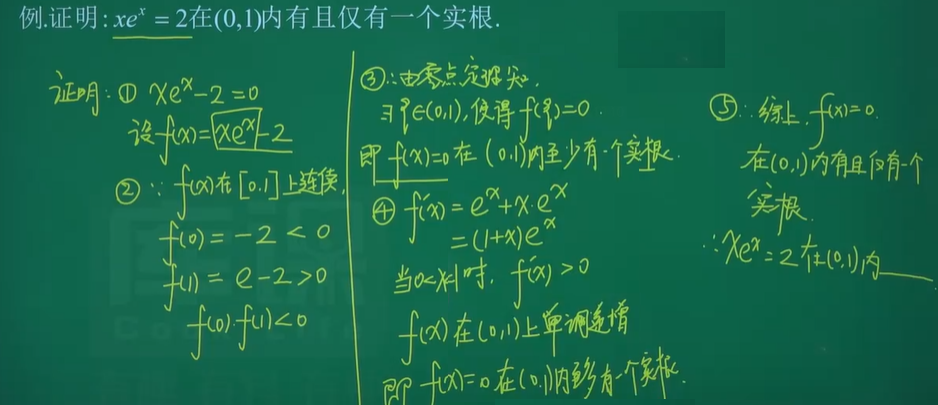 例.证明: xeˣ = 2在(0,1)内有且仅有一个实根.
证明: ① xeˣ-2=0
设f(x)=xeˣ-2
② ∵ f(x)在[0,1]上连续,
f(0)=-2<0
f(1)=e-2>0
f(0)·f(1)<0
③ ∴由零点定理知,
∃ξ∈(0,1),使得f(ξ)=0.
即 f(x)=0在(0,1)内至少有一个实根.
④ f'(x)=eˣ+x·eˣ
=(1+x)eˣ
当0<x<1时, f'(x)>0
f(x)在(0,1)上单调递增
即 f(x)=0在(0,1)内至多有一个实根.
⑤ 综上, f(x)=0.
在(0,1)内有且仅有一个
实根.
∴xeˣ=2在(0,1)内